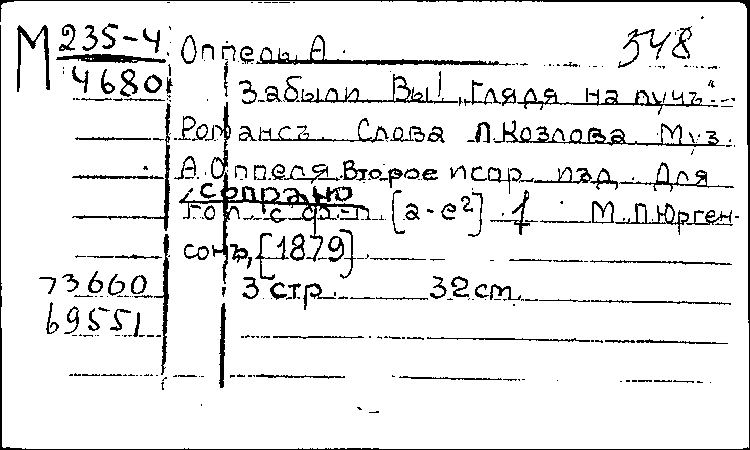 М 235-4 Оппель, А. 348
4680 Забыли Вы! „Глядя на лучъ“.-
Романсъ. Слова П.Козлова Муз.
А.Оппеля Второе испр. изд. Для
сопрано
гол. с ф.-п [a-e²] 1 М. П.Юрген-
сонъ, [1879]
73660 3 стр. 32 cm.
69551